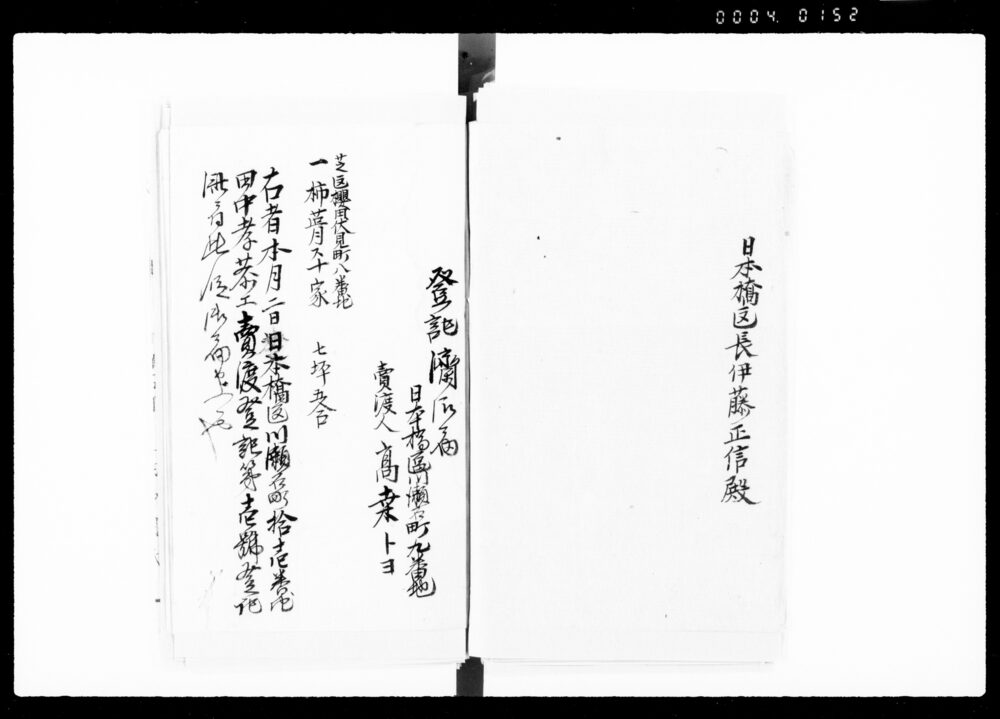 0004 0152
日本橋区長伊藤正信殿
登記済御届
日本橋區川瀬石町九番地
賣渡人 高桒トヨ
芝区櫻田伏見町八番地
一柿葺月スナ家 七坪五合
右者本月二日日本橋区川瀬石町拾壱番地
田中孝恭エ賣渡登記第壱號登記
此段御届候也